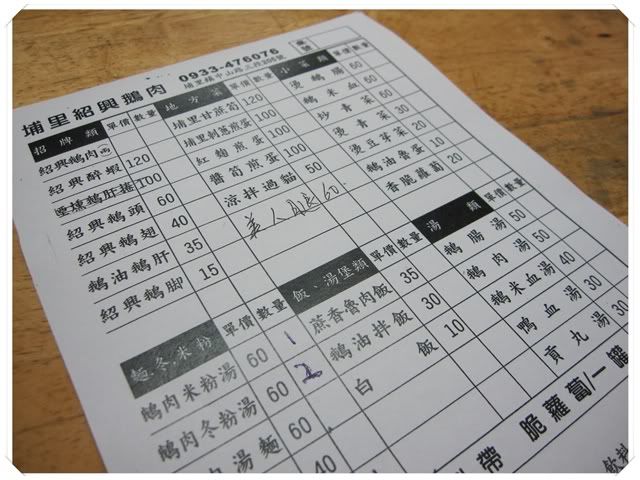 0933-476076
埔里紹興鵝肉
埔里鎮中山路三段206號
招牌類 單價 數量
紹興鵝肉
紹興醉蝦 120
煙燻鵝肝捲 100
紹興鵝頭 60
紹興鵝翅 40
鵝油鵝肝 35
紹興鵝腳 15
地方菜 單價 數量
埔里甘蔗筍 120
埔里刺蔥煎蛋 100
紅麴煎蛋 100
醬筍煎蛋 100
涼拌過貓 50
美人腿 60
小菜類 單價 數量
燙鵝腸 60
鵝米血 60
炒青菜 50
燙青菜 30
燙豆芽菜 20
鵝油魯蛋 10
香脆蘿蔔 20
麵.冬.米粉 單價 數量
鵝肉米粉湯 60 1
鵝肉冬粉湯 60 2
肉湯麵 60
40
飯、湯堡類 單價 數量
蔗香魯肉飯 35
鵝油拌飯 30
白飯 10
湯類 單價 數量
鵝腸湯 50
鵝肉湯 50
鵝米血湯 40
鴨血湯 30
貢丸湯 30
帶 脆蘿蔔/一罐
飲料